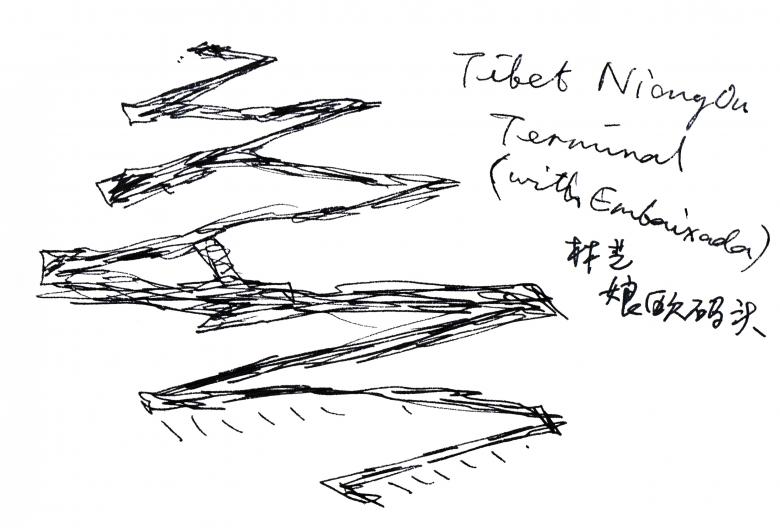 Tibet NiangOu
Terminal
(with Embaixada)
林芝
娘欧码头